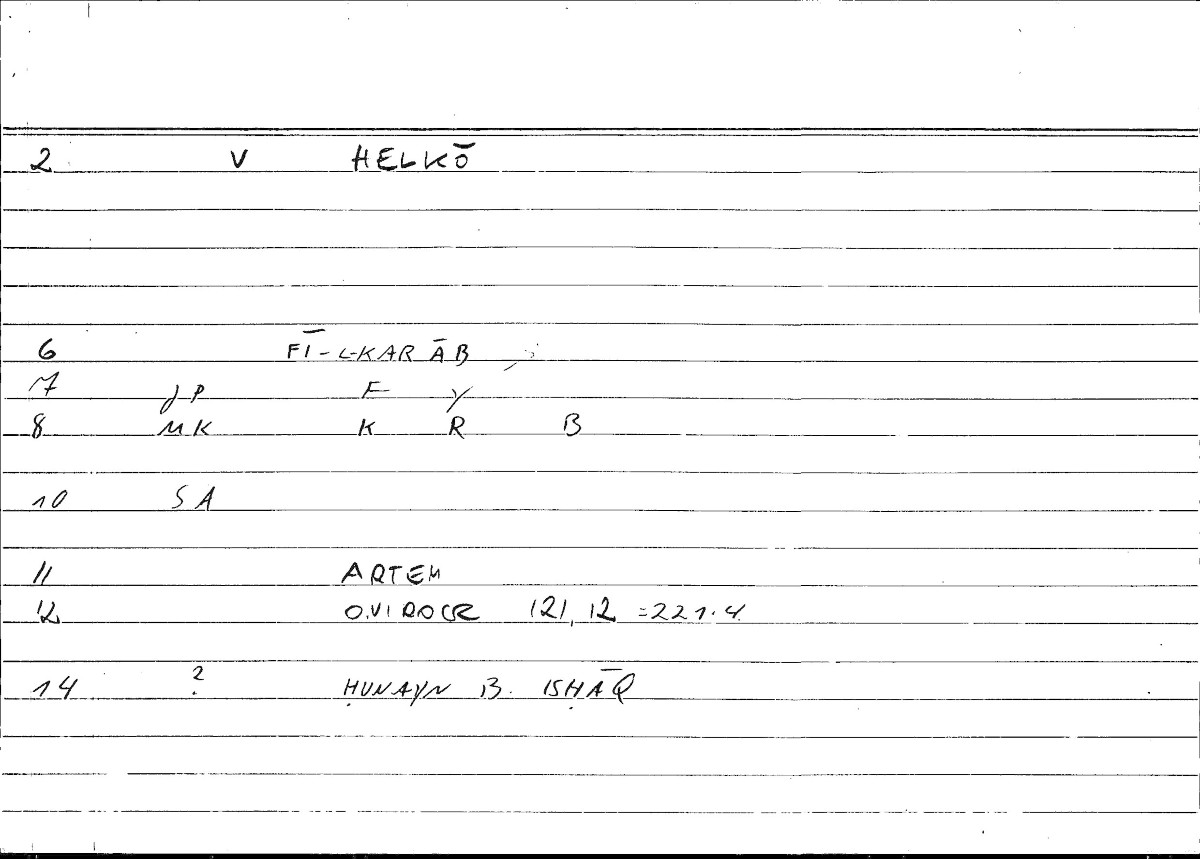 2 V HELKŌ
6 FĪ-L-KARĀB
7 JP F Y
8 MK K R B
10 SA
11 ARTEM
12 O.VIROCR 121,12 =221.4
14 ? ḤUNAYN B. ISḤĀQ